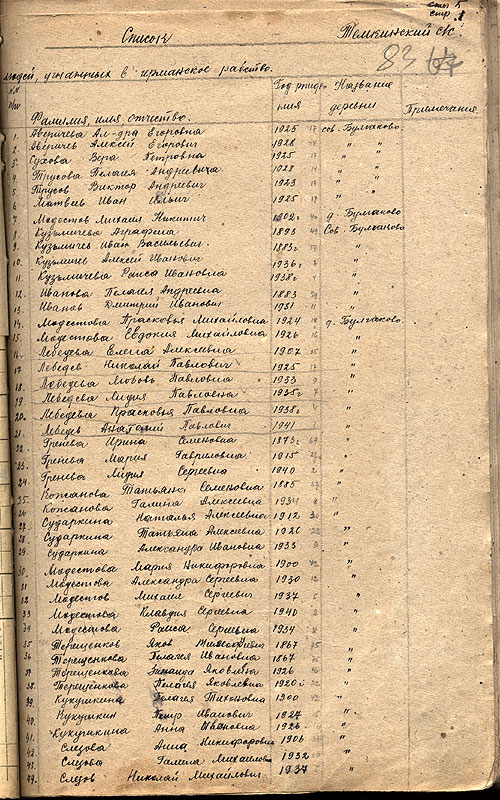 Список Темкинский с/с
людей, угнанных в германское рабство.
№№ Год рожде- Название
Фамилия, имя отчество. ния деревни Примечание.
1. Аверичева Ал-дра Егоровна 1925 сов. Булгаково
2. Аверичев Алексей Егорович 1928 " "
3. Сухова Вера Петровна 1925 " "
4. Трусова Пелагея Андреевича 1928 " "
5. Трусов Виктор Андреевич 1923 " "
6. Матвеев Иван Ильич 1925 "
7. Модестов Михаил Никитич 1902г. д. Булгаково
8. Кузьмичева Аграфена 1893 Сов. Булгаково
9. Кузьмичев Иван Васильевич. 1883г. "
10. Кузьмичев Алексей Иванович 1936г "
11. Кузьмичева Раиса Ивановна 1938г "
12. Иванова Пелагея Андреевна 1883 "
13. Иванов Дмитрий Иванович 1931 "
14. Модестова Прасковья Михайловна 1924 д. Булгаково
15. Модестова Евдокия Михайловна 1926 "
16. Лебедева Елена Алексеевна 1907 "
17. Лебедев Николай Павлович 1925 "
18. Лебедева Любовь Павловна 1933 "
19. Лебедева Лидия Павловна 1935г "
20. Лебедева Прасковья Павловна 1938г "
21. Лебедев Анатолий Павлович 1941 "
22. Гренева Ирина Семеновна 1873г "
23. Гренева Мария Гавриловна 1915 "
24. Гренева Лидия Сергеевна 1940 "
25. Кожанова Татьяна Семеновна 1885 "
26. Кожанова Галина Алексеевна 1934 "
27. Сударкина Наталья Алексеевна 1912 "
28. Сударкина Татьяна Алексеевна 1926 "
29. Сударкина Александра Ивановна 1933 "
30. Модестова Мария Никифоровна 1900 "
31. Модестова Александра Сергеевна 1930 "
32. Модестов Михаил Сергеевич 1937 "
33. Модестова Клавдия Сергеевна 1940 "
34. Модестова Раиса Сергеевна 1934 "
35. Терещенков Яков 1867 "
36. Терещенкова Пелагея Ивановна 1867 "
37. Терещенкова Зинаида Яковлевна 1926 "
38. Терещенкова Пелагея Яковлевна 1920 "
39. Кукушкина Пелагея Тихоновна 1900 "
40. Кукушкин Петр Иванович 1927 "
41. Кукушкина Анна Ивановна 1926 "
42. Слезова Анна Никифоровна 1906 "
43. Слезова Галина Михайловна 1932 "
44. Слезов Николай Михайлович 1937 "